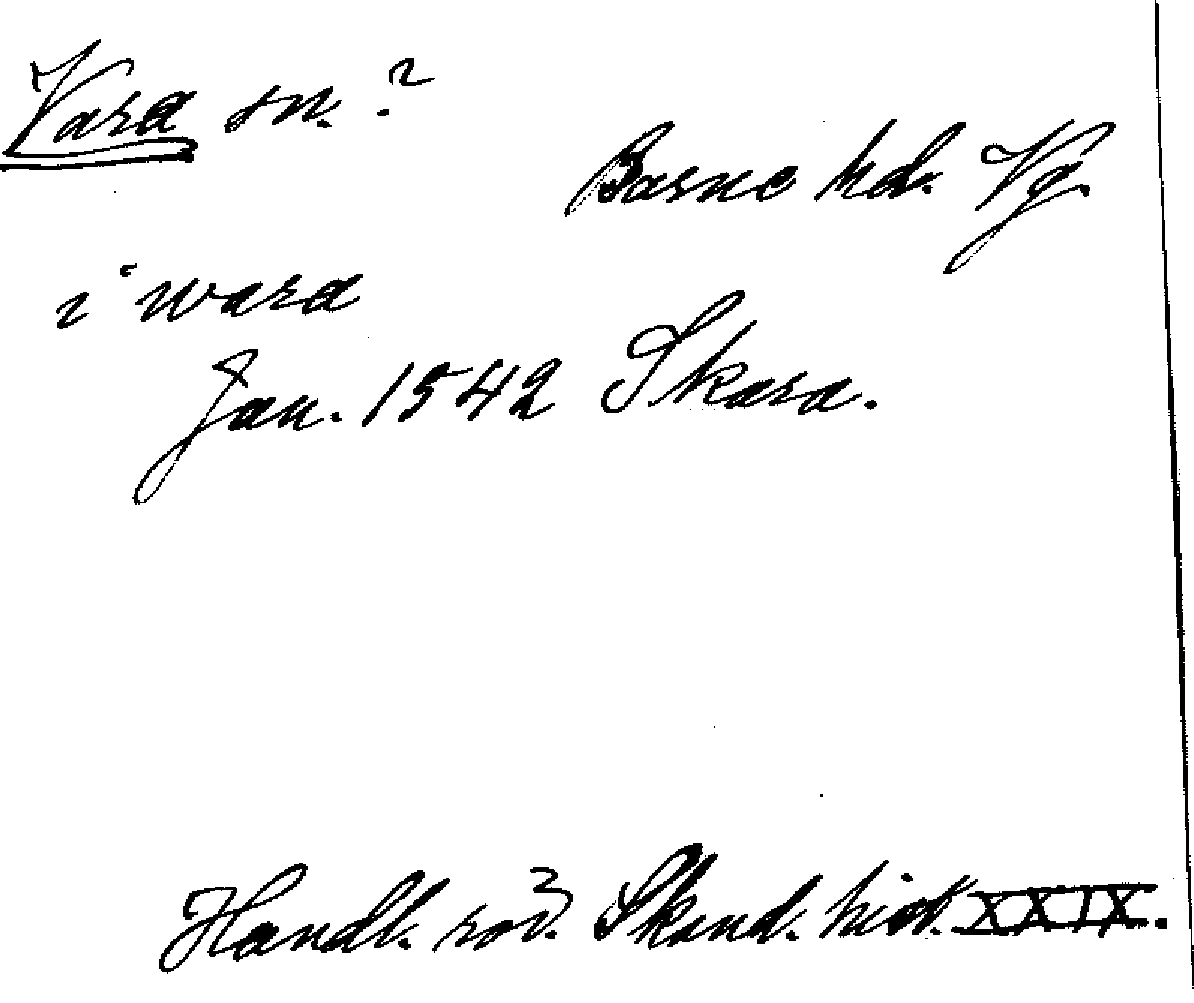 Vara sn.?
Barne hd. Vg.
i wara
Jan. 1542 Skara.
Handl. rör. Skand. hist. XXIX.